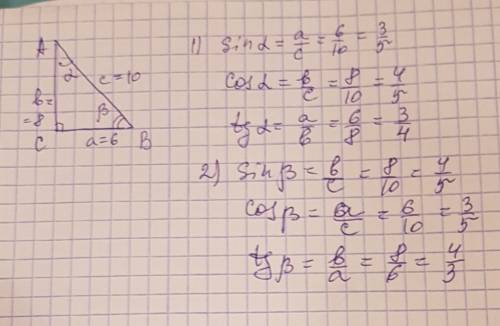 A
α
c=10
b=
=8
β
C
a=6
B
1) sinα = a/c = 6/10 = 3/5
cosα = b/c = 8/10 = 4/5
tgα = a/b = 6/8 = 3/4
2) sinβ = b/c = 8/10 = 4/5
cosβ = a/c = 6/10 = 3/5
tgβ = b/a = 8/6 = 4/3